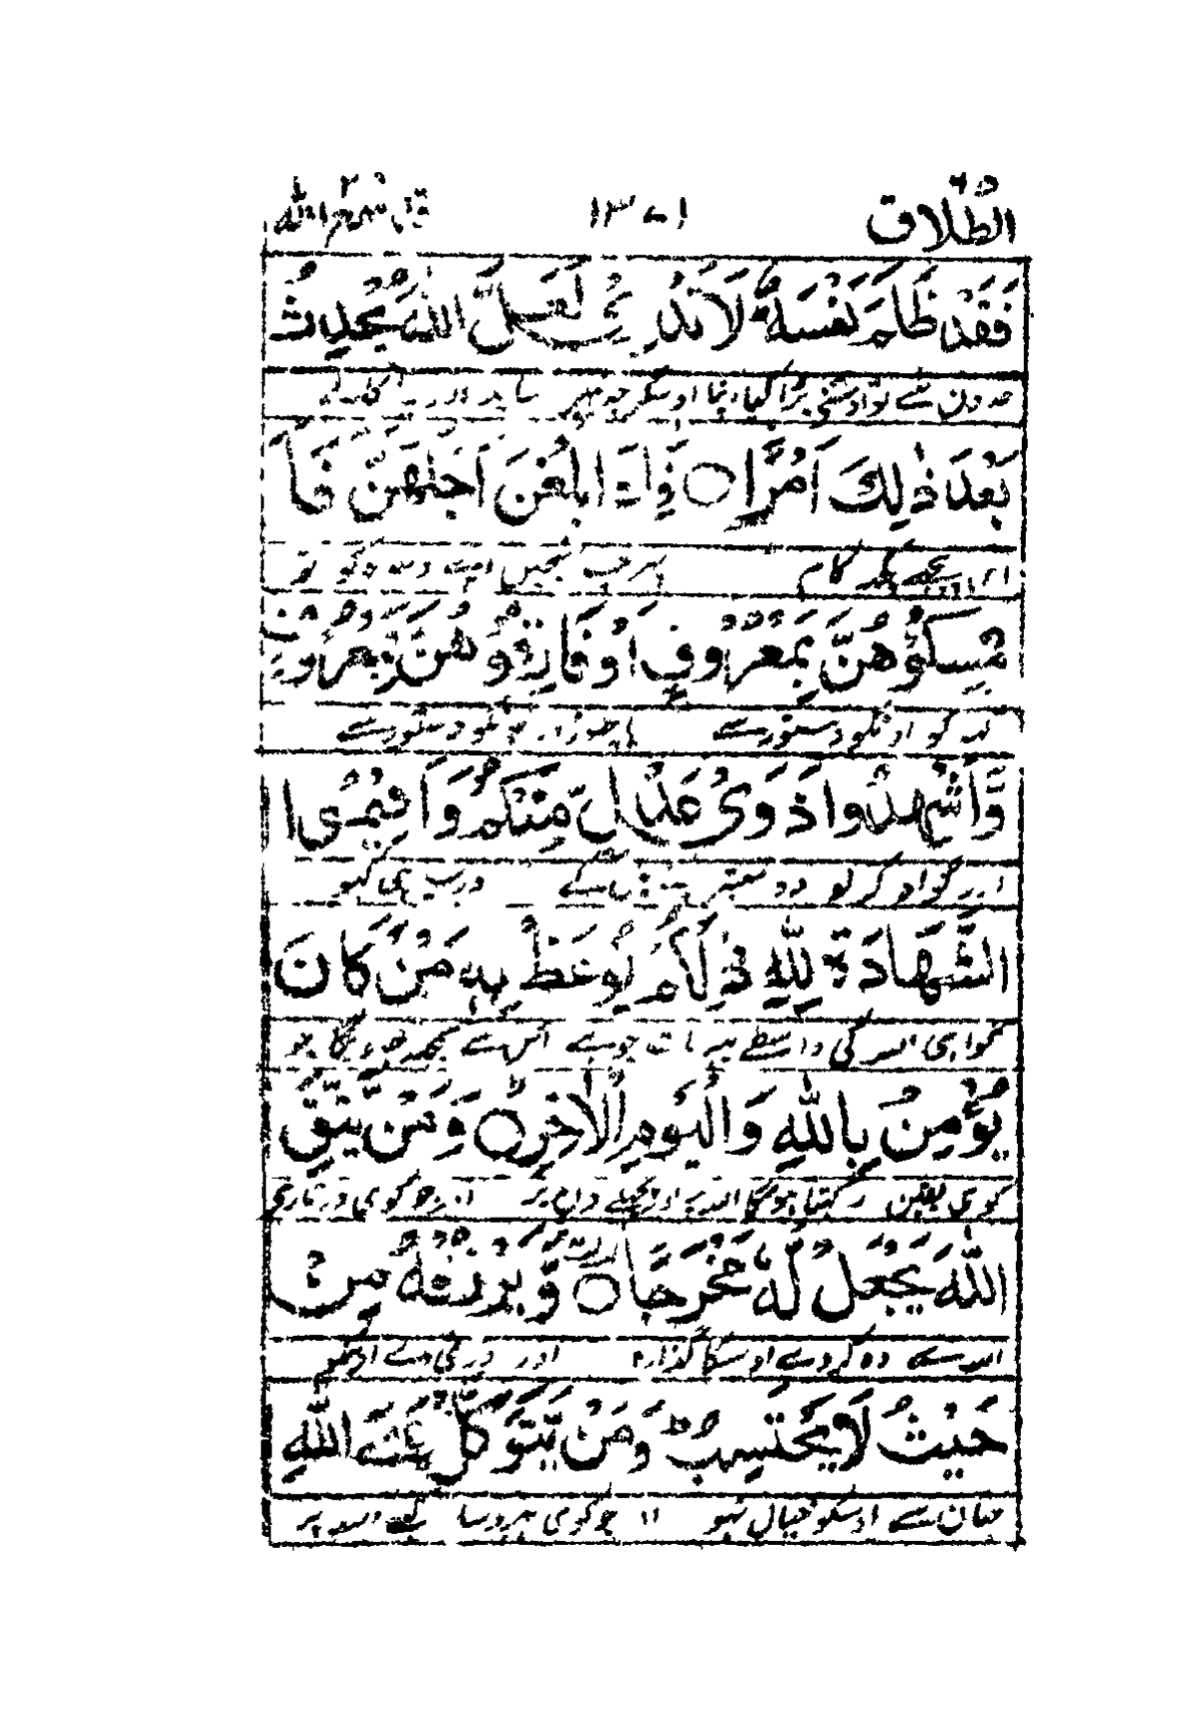 الطلاق ٦٥ ١٣٧١ قد سمع الله ٢٨
فَقَدْ ظَلَمَ نَفْسَهٗ لَا تَدْرِیْ لَعَلَّ اللّٰهَ یُحْدِثُ
بڑا کیا اپنا اوسکو
بَعْدَ ذٰلِكَ اَمْرًا ○ فَاِذَا بَلَغْنَ اَجَلَهُنَّ فَاَ
پیچھے کچھ کام پھر جب پہنچیں اپنے وعدہ کو تو
مْسِكُوْهُنَّ بِمَعْرُوْفٍ اَوْ فَارِقُوْهُنَّ بِمَعْرُوْفٍ
کو اونکو دستور سے یا چھوڑ دو اونکو دستور سے
وَّاَشْهِدُوْا ذَوَیْ عَدْلٍ مِّنْكُمْ وَاَقِیْمُوا
اور گواہ کر لو دو معتبر
الشَّهَادَةَ لِلّٰهِ ذٰلِكُمْ یُوْعَظُ بِهٖ مَنْ كَانَ
گواہی اللہ کی واسطے یہ بات جو ہے اس سے سمجھ جاویگا جو
یُؤْمِنُ بِاللّٰهِ وَالْیَوْمِ الْاٰخِرِ ○ وَمَنْ یَّتَّقِ
کوی یقین رکھتا ہوگا اللہ پر اور پچھلے دن پر اور جو کوی ڈرتا رہی
اللّٰهَ یَجْعَلْ لَّهٗ مَخْرَجًا ○ وَّیَرْزُقْهُ مِنْ
اللہ سے وہ کر دے اوسکا گذارہ اور روزی دے اوسکو
حَیْثُ لَا یَحْتَسِبُ وَمَنْ یَّتَوَكَّلْ عَلَی اللّٰهِ
جہان سے اوسکو خیال نہو اور جو کوی بھروسا رکھے اللہ پر